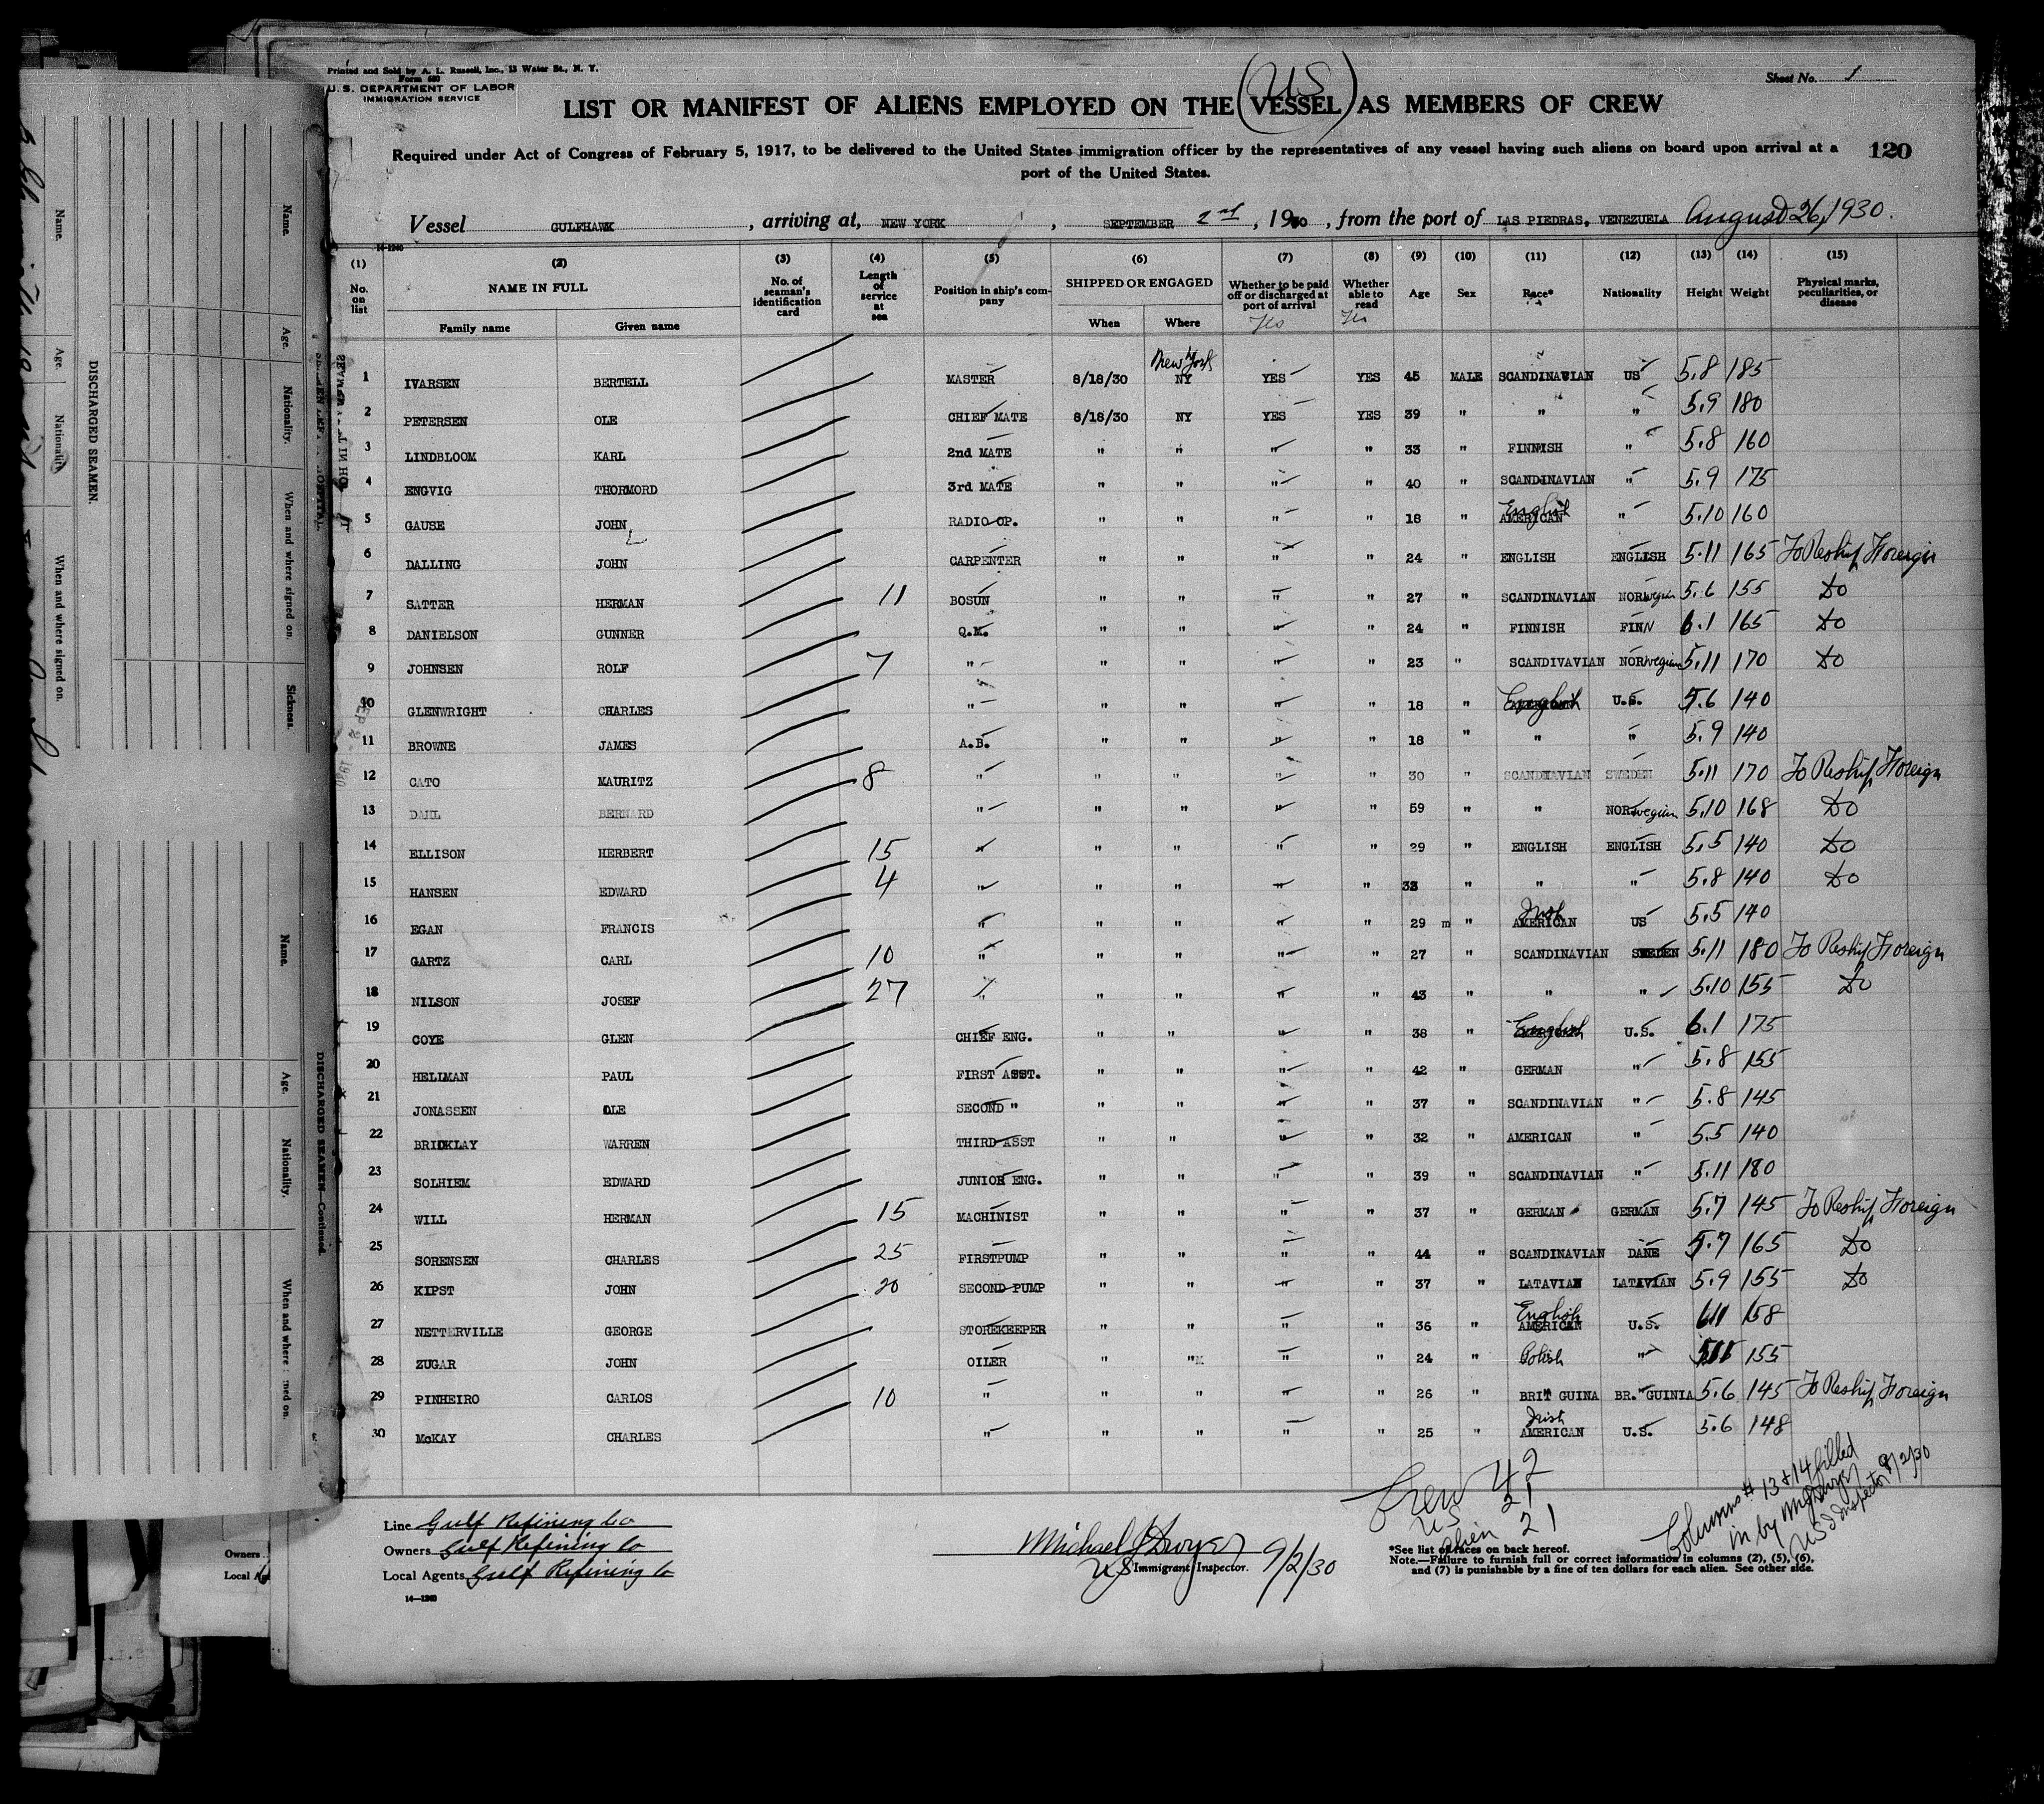 Printed and Sold by A. L. Russell, Inc., 13 Water St., N. Y.
Form 680
U. S. DEPARTMENT OF LABOR
IMMIGRATION SERVICE
Sheet No. 1
US
LIST OR MANIFEST OF ALIENS EMPLOYED ON THE (VESSEL) AS MEMBERS OF CREW
Required under Act of Congress of February 5, 1917, to be delivered to the United States immigration officer by the representatives of any vessel having such aliens on board upon arrival at a
port of the United States.
120
Vessel GULFHAWK, arriving at, NEW YORK, SEPTEMBER 2nd, 1930, from the port of LAS PIEDRAS, VENEZUELA August 26, 1930.
14-1240
(1) (2) (3) (4) (5) (6) (7) (8) (9) (10) (11) (12) (13) (14) (15)
No. on list NAME IN FULL Family name Given name No. of seaman's identification card Length of service at sea Position in ship's company SHIPPED OR ENGAGED When Where Whether to be paid off or discharged at port of arrival Whether able to read Age Sex Race* Nationality Height Weight Physical marks, peculiarities, or disease
New York
1 IVARSEN BERTELL MASTER 8/18/30 NY YES YES 45 MALE SCANDINAVIAN US 5.8 185
2 PETERSEN OLE CHIEF MATE 8/18/30 NY YES YES 39 " " " 5.9 180
3 LINDBLOOM KARL 2nd MATE " " " " 33 " FINNISH " 5.8 160
4 ENGVIG THORMORD 3rd MATE " " " " 40 " SCANDINAVIAN " 5.9 175
5 GAUSE JOHN L RADIO OP. " " " " 18 " AMERICAN English " 5.10 160
6 DALLING JOHN CARPENTER " " " " 24 " ENGLISH ENGLISH 5.11 165 To Reship Foreign
7 SATTER HERMAN 11 BOSUN " " " " 27 " SCANDINAVIAN NORwegian 5.6 155 Do
8 DANIELSON GUNNER Q.M. " " " " 24 " FINNISH FINN 6.1 165 Do
9 JOHNSEN ROLF 7 " " " " " 23 " SCANDIVAVIAN NORwegian 5.11 170 Do
10 GLENWRIGHT CHARLES " " " " " 18 " English U.S. 5.6 140
11 BROWNE JAMES A.B. " " " " 18 " " " 5.9 140
12 CATO MAURITZ 8 " " " " " 30 " SCANDINAVIAN SWEDEN 5.11 170 To Reship Foreign
13 DAHL BERNARD " " " " " 59 " " NORwegian 5.10 168 Do
14 ELLISON HERBERT 15 " " " " " 29 " ENGLISH ENGLISH 5.5 140 Do
15 HANSEN EDWARD 4 " " " " " 38 " " " 5.8 140 Do
16 EGAN FRANCIS " " " " " 29 m " AMERICAN Irish US 5.5 140
17 GARTZ CARL 10 " " " " " 27 " SCANDINAVIAN SWEDEN 5.11 180 To Reship Foreign
18 NILSON JOSEF 27 " " " " " 43 " " " 5.10 155 Do
19 COYE GLEN CHIEF ENG. " " " " 38 " English U.S. 6.1 175
20 HELLMAN PAUL FIRST ASST. " " " " 42 " GERMAN " 5.8 155
21 JONASSEN OLE SECOND " " " " " 37 " SCANDINAVIAN " 5.8 145
22 BRIDKLAY WARREN THIRD ASST " " " " 32 " AMERICAN " 5.5 140
23 SOLHIEM EDWARD JUNIOR ENG. " " " " 39 " SCANDINAVIAN " 5.11 180
24 WILL HERMAN 15 MACHINIST " " " " 37 " GERMAN GERMAN 5.7 145 To Reship Foreign
25 SORENSEN CHARLES 25 FIRSTPUMP " " " " 44 " SCANDINAVIAN DANE 5.7 165 Do
26 KIPST JOHN 20 SECOND PUMP " " " " 37 " LATAVIAN LATAVIAN 5.9 155 Do
27 NETTERVILLE GEORGE STOREKEEPER " " " " 36 " AMERICAN English U.S. 158
28 ZUGAR JOHN OILER " " " " 24 " Polish " 155
29 PINHEIRO CARLOS 10 " " " " " 26 " BRIT GUINA BR. GUINIA 5.6 145 To Reship Foreign
30 McKAY CHARLES " " " " " 25 " AMERICAN Irish U.S. 5.6 148
Crew 42
US 21
Alien 21
Columns # 13 & 14 filled
in by M J Dwyer
US I Inspector 9/2/30
Line Gulf Refining Co
Owners Gulf Refining Co
Local Agents Gulf Refining Co
14-1240
Michael J Dwyer
US Immigrant Inspector. 9/2/30
*See list of races on back hereof.
Note.—Failure to furnish full or correct information in columns (2), (5), (6),
and (7) is punishable by a fine of ten dollars for each alien. See other side.
DISCHARGED SEAMEN.
Name. Age. Nationality. When and where signed on.
Name. Age. Nationality. When and where signed on. Sickness.
DISCHARGED SEAMEN—Continued.
Name. Age. Nationality. When and where
Owners
Local